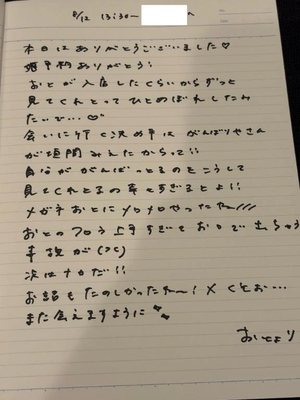 8/12 13:30~ へ
本日はありがとうございました♡
ありがとう!
おとが入店したくらいからずっと
見てくれとってひとめぼれしたみ
たいで…♡
会いに行く決め手は がんばりやさん
が垣間みえたからって!!
自分ががんばっとるのをこうして
見てくれとるの幸せすぎるとよ!!
メガネおとにメロメロやったね〜///
おとのフロう上手すぎてお口で出ちゃう
事故が(笑)
次はナカだ!!
お話もたのしかったね〜!メくとお…
また会えますように
おとより